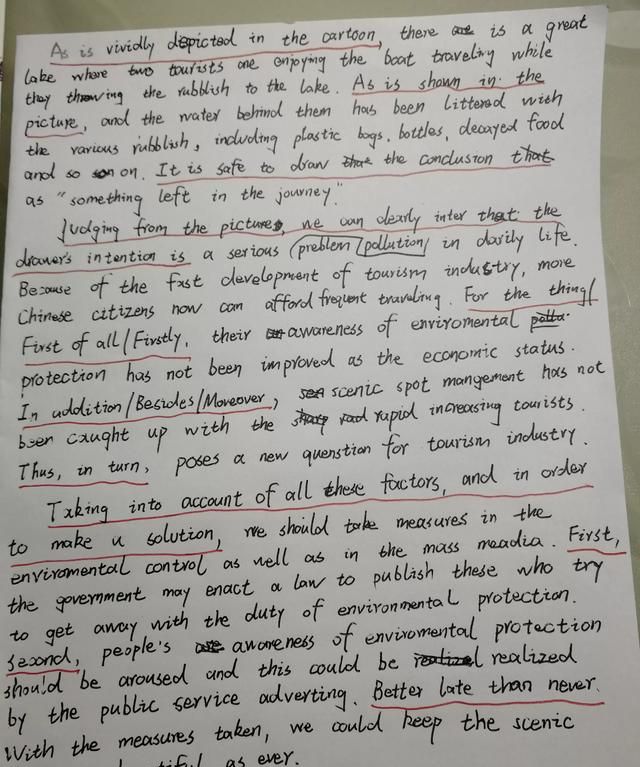 As is vividly depicted in the cartoon, there is a great
lake where two tourists are enjoying the boat traveling while
they throwing the rubblish to the lake. As is shown in the
picture, and the water behind them has been littered with
the various rubblish, including plastic bags, bottles, decayed food
and so on. It is safe to draw the conclusion that
as "something left in the journey."
Judging from the picture, we can clearly inter that the
drawer's intention is a serious (problem/pollution) in darily life.
Because of the fast development of tourism industry, more
Chinese citizens now can afford frequent traveling. For the thing/
First of all/Firstly, their awareness of enviromental
protection has not been improved as the economic status.
In addition/Besides/Moreover, scenic spot mangement has not
been caught up with the rapid increasing tourists.
Thus, in turn, poses a new quenstion for tourism industry.
Taking into account of all these factors, and in order
to make a solution, we should take measures in the
enviromental control as well as in the mass meadia. First,
the government may enact a law to publish these who try
to get away with the duty of environmental protection.
Second, people's awareness of enviromental protection
should be aroused and this could be realized
by the public service adverting. Better late than never.
With the measures taken, we could keep the scenic
as ever.